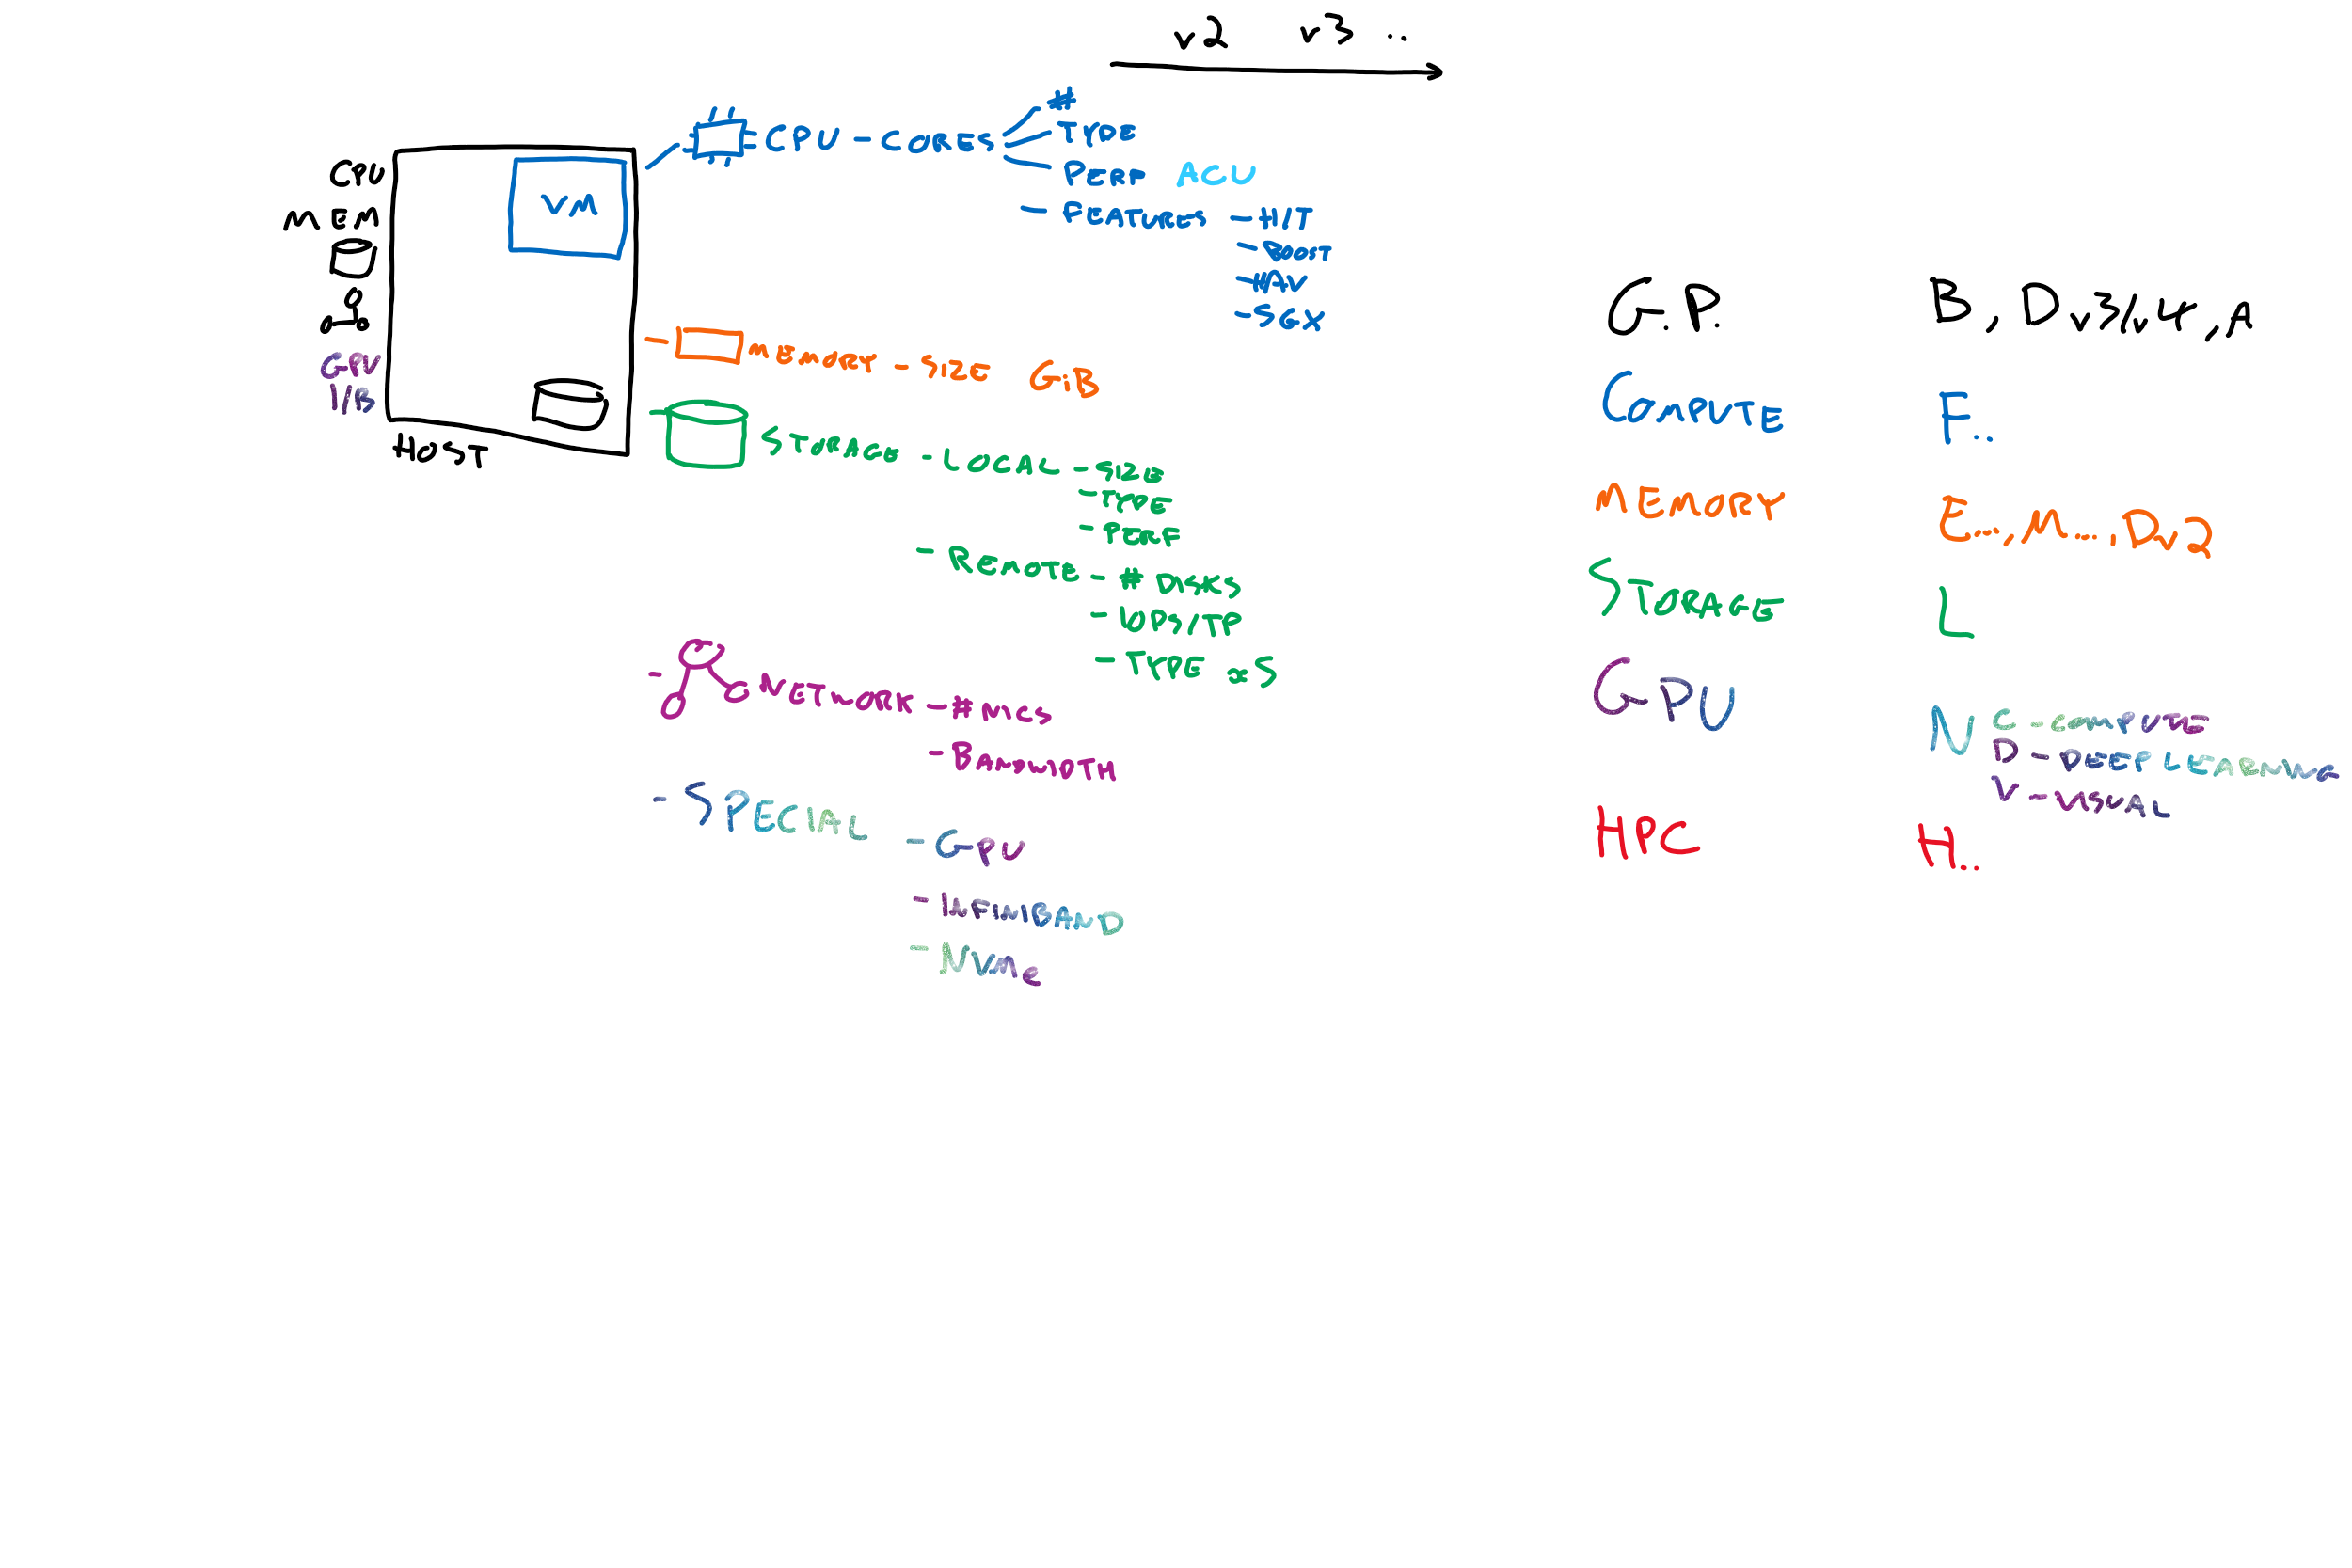 v2 v3 ..
CPU
MEM
GPU
I/B
HOST
VM
CPU - CORES
#
TYPE
PERF ACU
- FEATURES - H/T
- BOOST
- NAV
- SGX
- MEMORY - SIZE GiB
STORAGE - LOCAL - SIZE
- TYPE
- PERF
- REMOTE - # DISKS
- IOPS/TP
- TYPE S
- NETWORK - # NICS
- BANDWIDTH
- SPECIAL - GPU
- INFINIBAND
- NVMe
G.P. B, Dv3/v4, A
COMPUTE F..
MEMORY E..., M...., Dv2
STORAGE L
GPU N C - COMPUTE
D - DEEP LEARNING
V - VISUAL
HPC H..